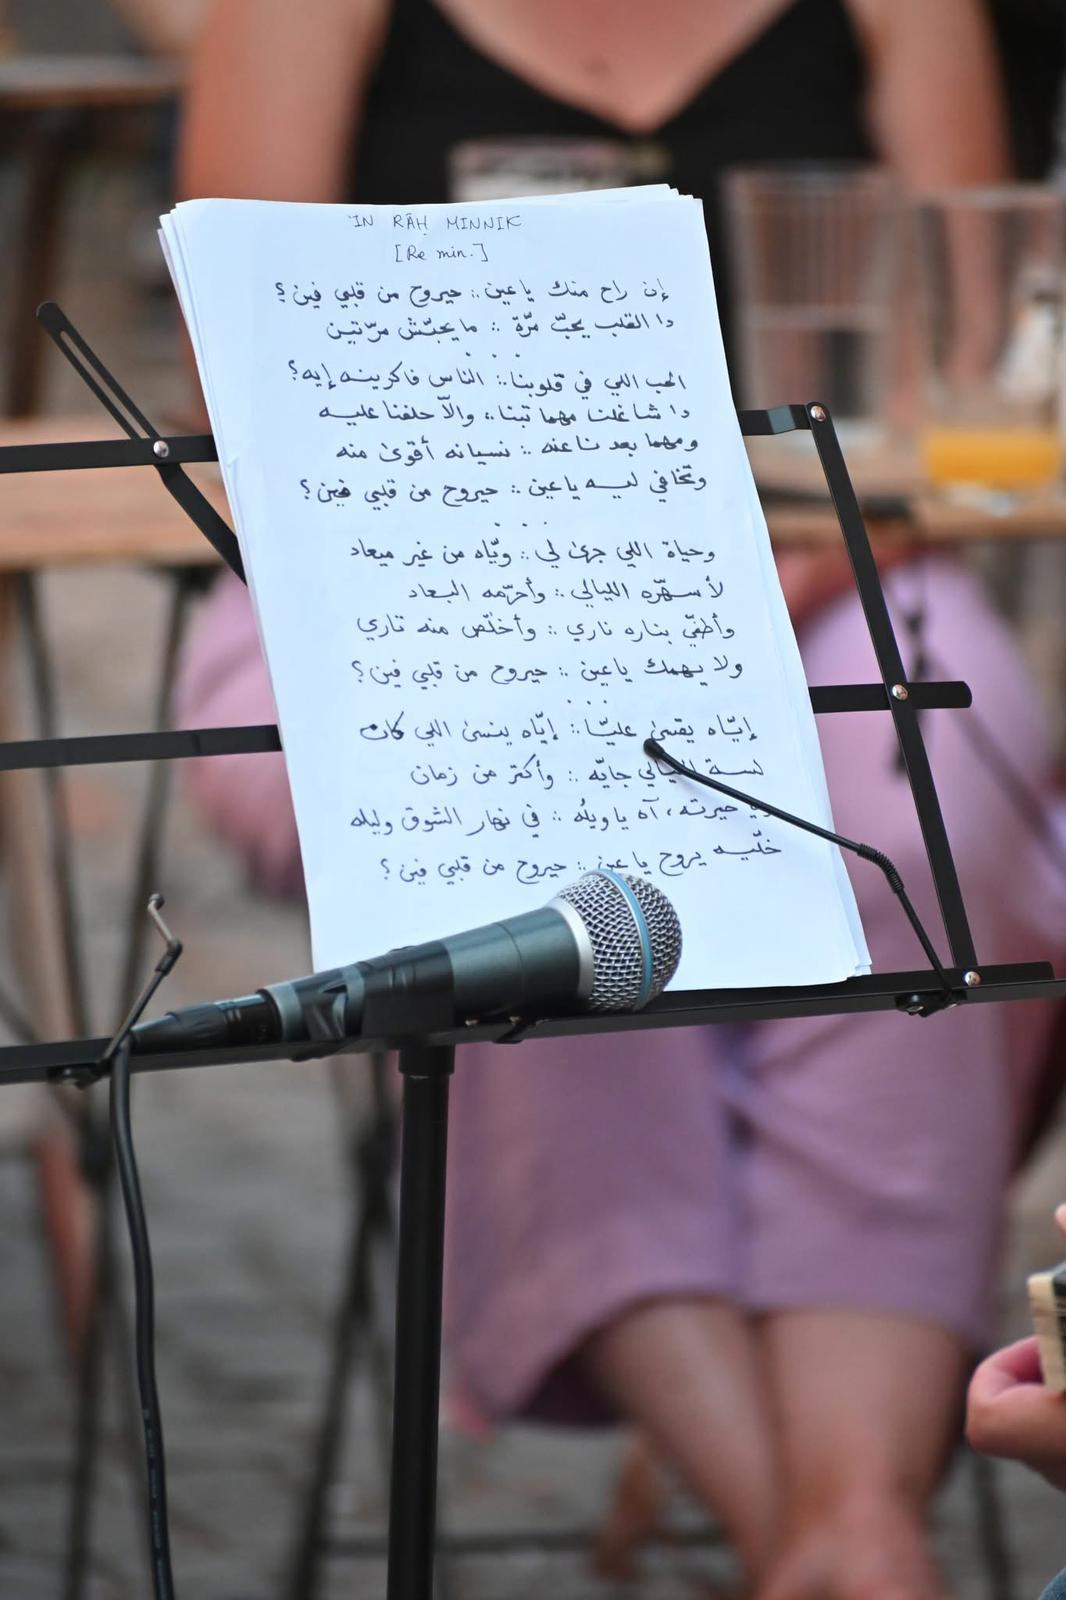 'IN RĀḤ MINNIK
[Re min.]
إن راح منك ياعين :: حيروح من قلبي فين؟
دا القلب يحبّ مرّة :: ما يحبّش مرّتين
. . .
الحب اللي في قلوبنا :: الناس فاكرينه إيه؟
دا شاغلنا مهما تبنا :: والّا حلفنا عليه
ومهما بعد ناعنه :: نسيانه أقوى منه
وتخافي ليه ياعين :: حيروح من قلبي فين؟
. . .
وحياة اللي جرى لي :: ويّاه من غير ميعاد
لأسهّره الليالي :: وأحرّمه البعاد
وأطفّي بناره ناري :: وأخلّص منه تاري
ولا يهمك ياعين :: حيروح من قلبي فين؟
. . .
إيّاه يقسى عليّا :: إيّاه ينسى اللي كان
لسة الليالي جايّه :: وأكتر من زمان
حيرته، آه ياويلُه :: في نهار الشوق وليله
خلّيه يروح ياعين :: حيروح من قلبي فين؟